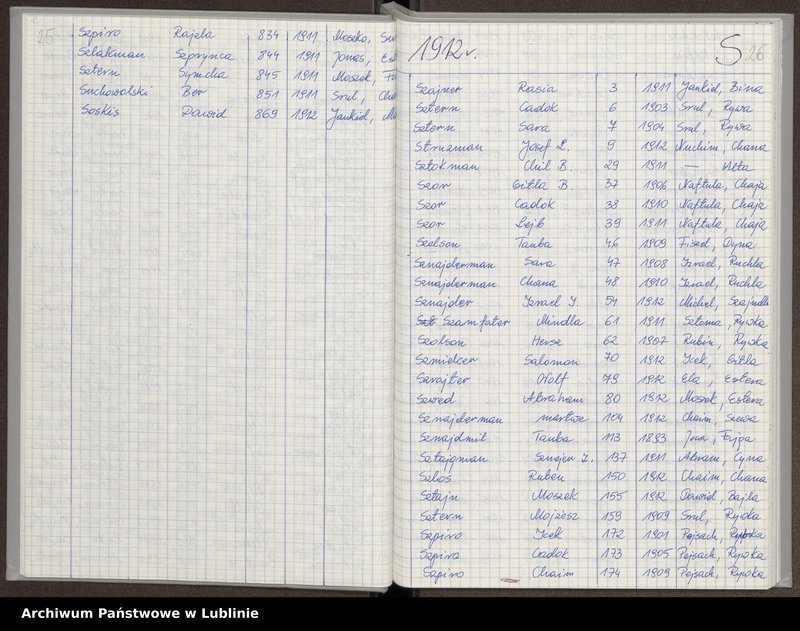 25
Szpiro Rajzla 834 1911 Moszko,
Szlakman Szprynca 844 1911 Jonas,
Sztern Symcha 845 1911 Moszek,
Suchowolski Ber 851 1911 Srul,
Soskis Dawid 869 1912 Jankiel,
1912 r. S 26
Szajner Rasia 3 1911 Jankiel, Bina
Sztern Cadok 6 1903 Srul, Rywa
Sztern Sara 7 1904 Srul, Rywa
Struzman Josef L. 9 1912 Nuchim, Chana
Sztokman Chil B. 29 1911 — Alta
Szor Gitla B. 37 1906 Naftula, Chaja
Szor Cadok 38 1910 Naftula, Chaja
Szor Lejb 39 1911 Naftula, Chaja
Szolson Tauba 46 1909 Fiszel, Dyna
Sznajderman Sara 47 1908 Izrael, Ruchla
Sznajderman Chana 48 1910 Izrael, Ruchla
Sznajder Izrael J. 1912 Michel, Szajndla
Szamfater Mindla 61 1911 Szloma, Rywka
Szolson Hersz 62 1907 Rubin, Rywka
Szmielcer Salomon 70 1912 Icek, Gitla
Szrajter Wolf 79 1912 Ela, Estera
Szwed Abraham 80 1912 Moszek, Estera
Sznajderman martwe 104 1912 Chaim, Szewa
Sznajdmil Tauba 113 1893 Fajga
Sztajgman Sznejer Z. 137 1911 Abram, Cyna
Szlos Ruben 150 1912 Chaim, Chana
Sztajn Moszek 155 1912 Dawid, Bajla
Sztern Mojżesz 159 1909 Srul, Rywka
Szpiro Icek 172 1901 Pejsach, Rywka
Szpiro Cadok 173 1905 Pejsach, Rywka
Szpiro Chaim 174 1909 Pejsach, Rywka
Archiwum Państwowe w Lublinie